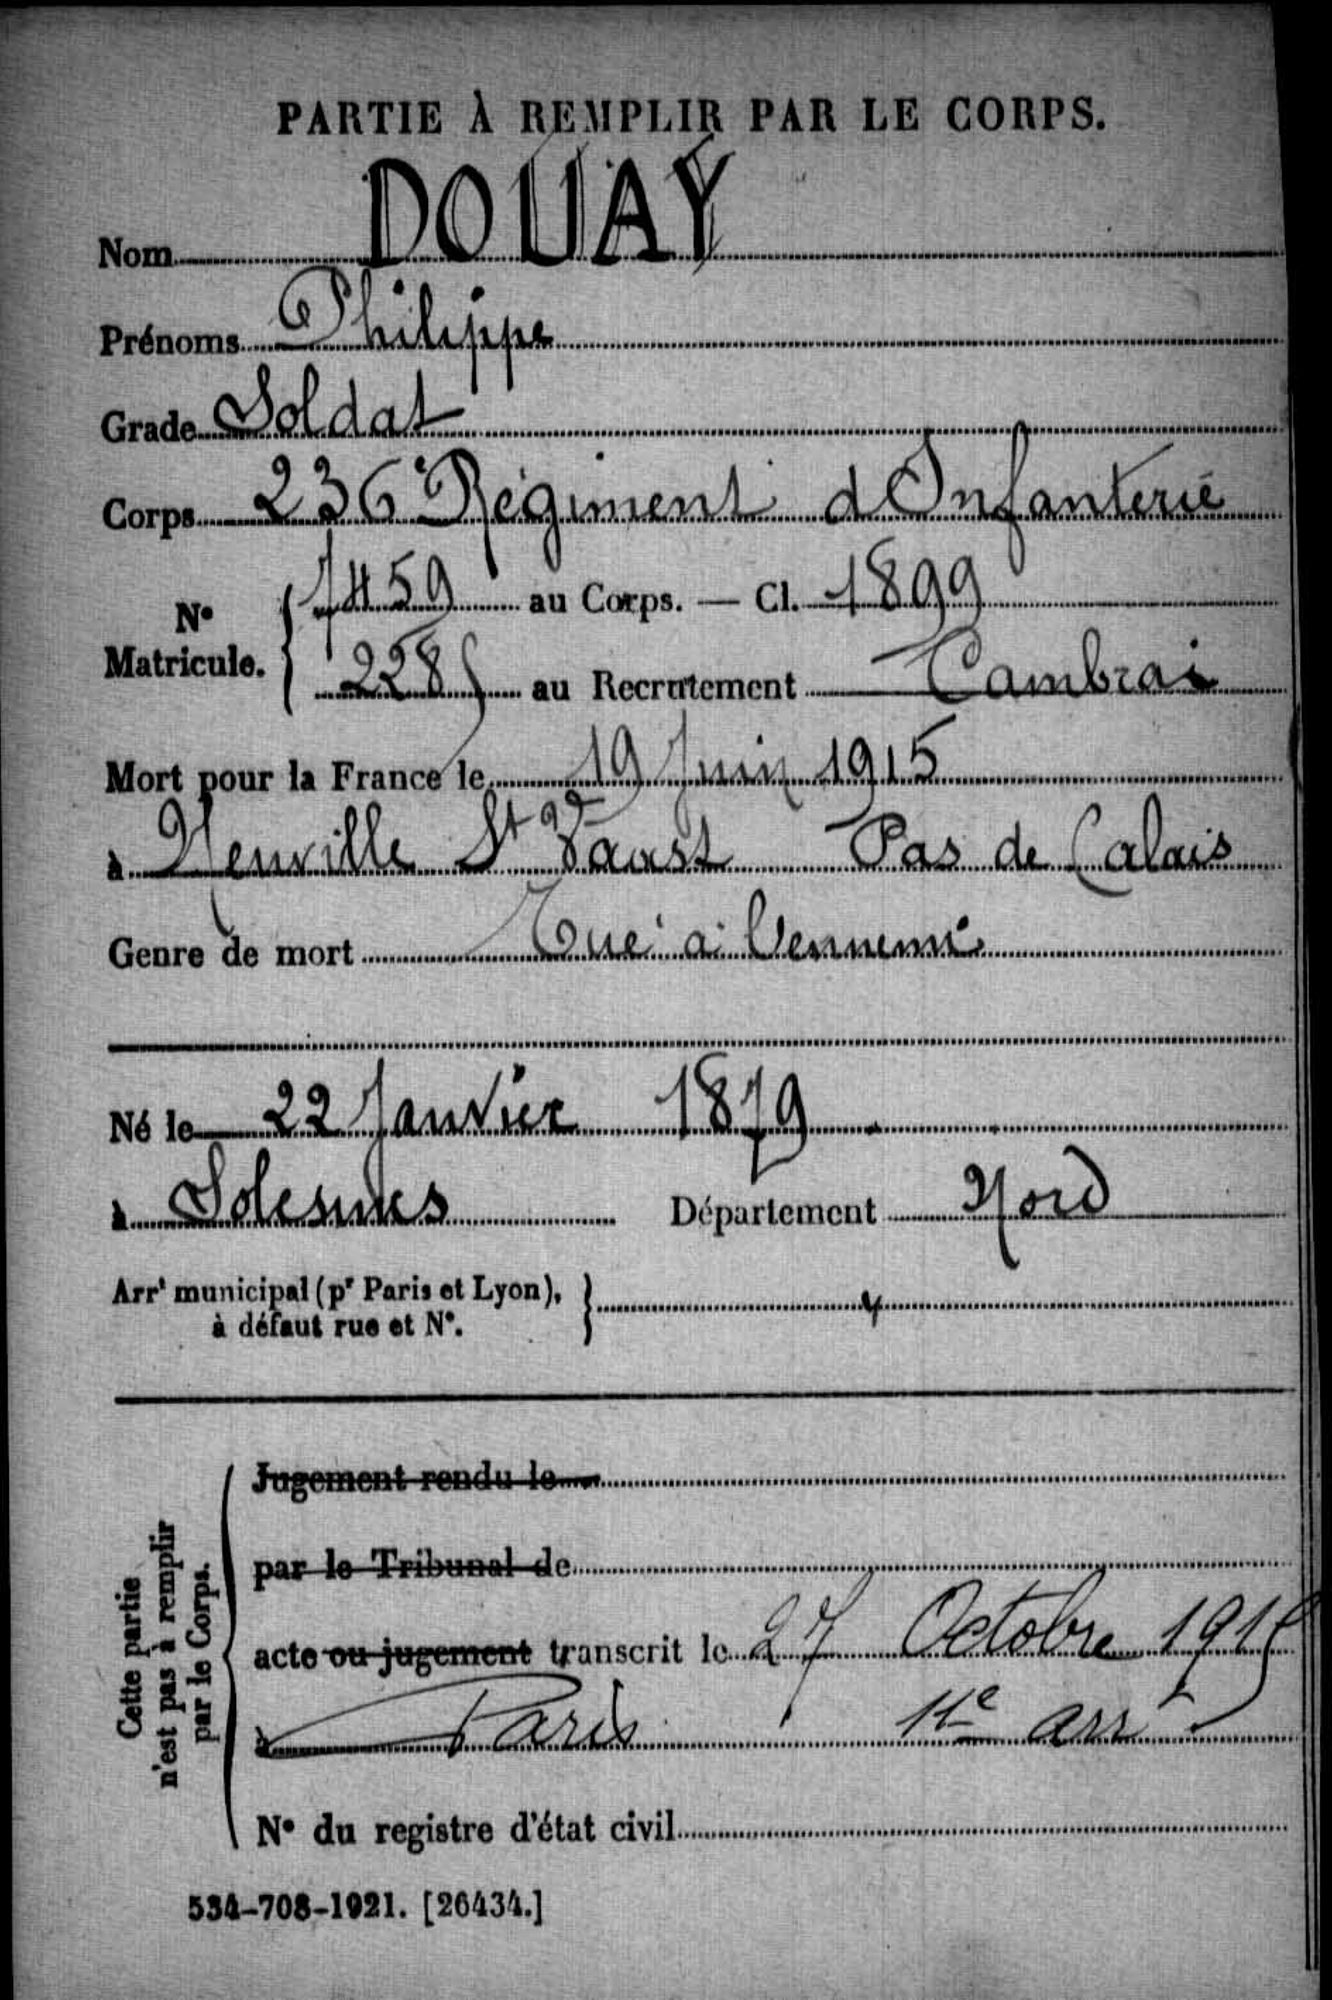 PARTIE À REMPLIR PAR LE CORPS.
Nom DOUAY
Prénoms Philippe
Grade Soldat
Corps 236e Régiment d'Infanterie
N° Matricule. { 7459 au Corps. — Cl. 1899
2285 au Recrutement Cambrai
Mort pour la France le 19 Juin 1915
à Neuville St Vaast Pas de Calais
Genre de mort Tué à l'ennemi
Né le 22 Janvier 1879
à Solesmes Département Nord
Arrt municipal (pr Paris et Lyon),
à défaut rue et N°. }
Cette partie
n'est pas à remplir
par le Corps.
Jugement rendu le
par le Tribunal de
acte ou jugement transcrit le 27 Octobre 1915
à Paris 11e arrt
N° du registre d'état civil
534-708-1921. [26434.]